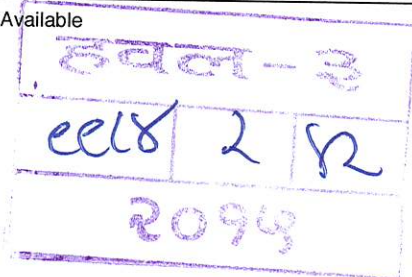 Available
हवल-३
९९८४ २ ४२
२०१५